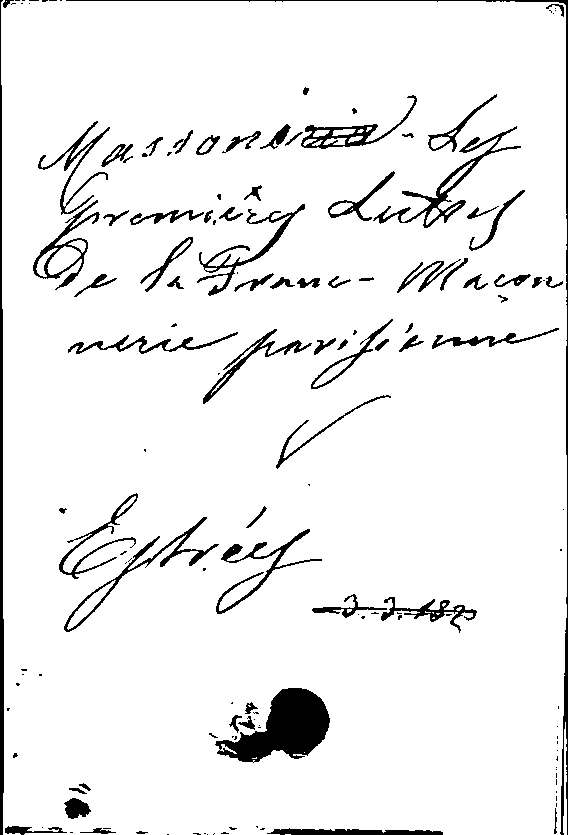 Massoni - Les
premières Lutes
de la Franc-Maçon
nerie parisienne
Estrées
3.3.182